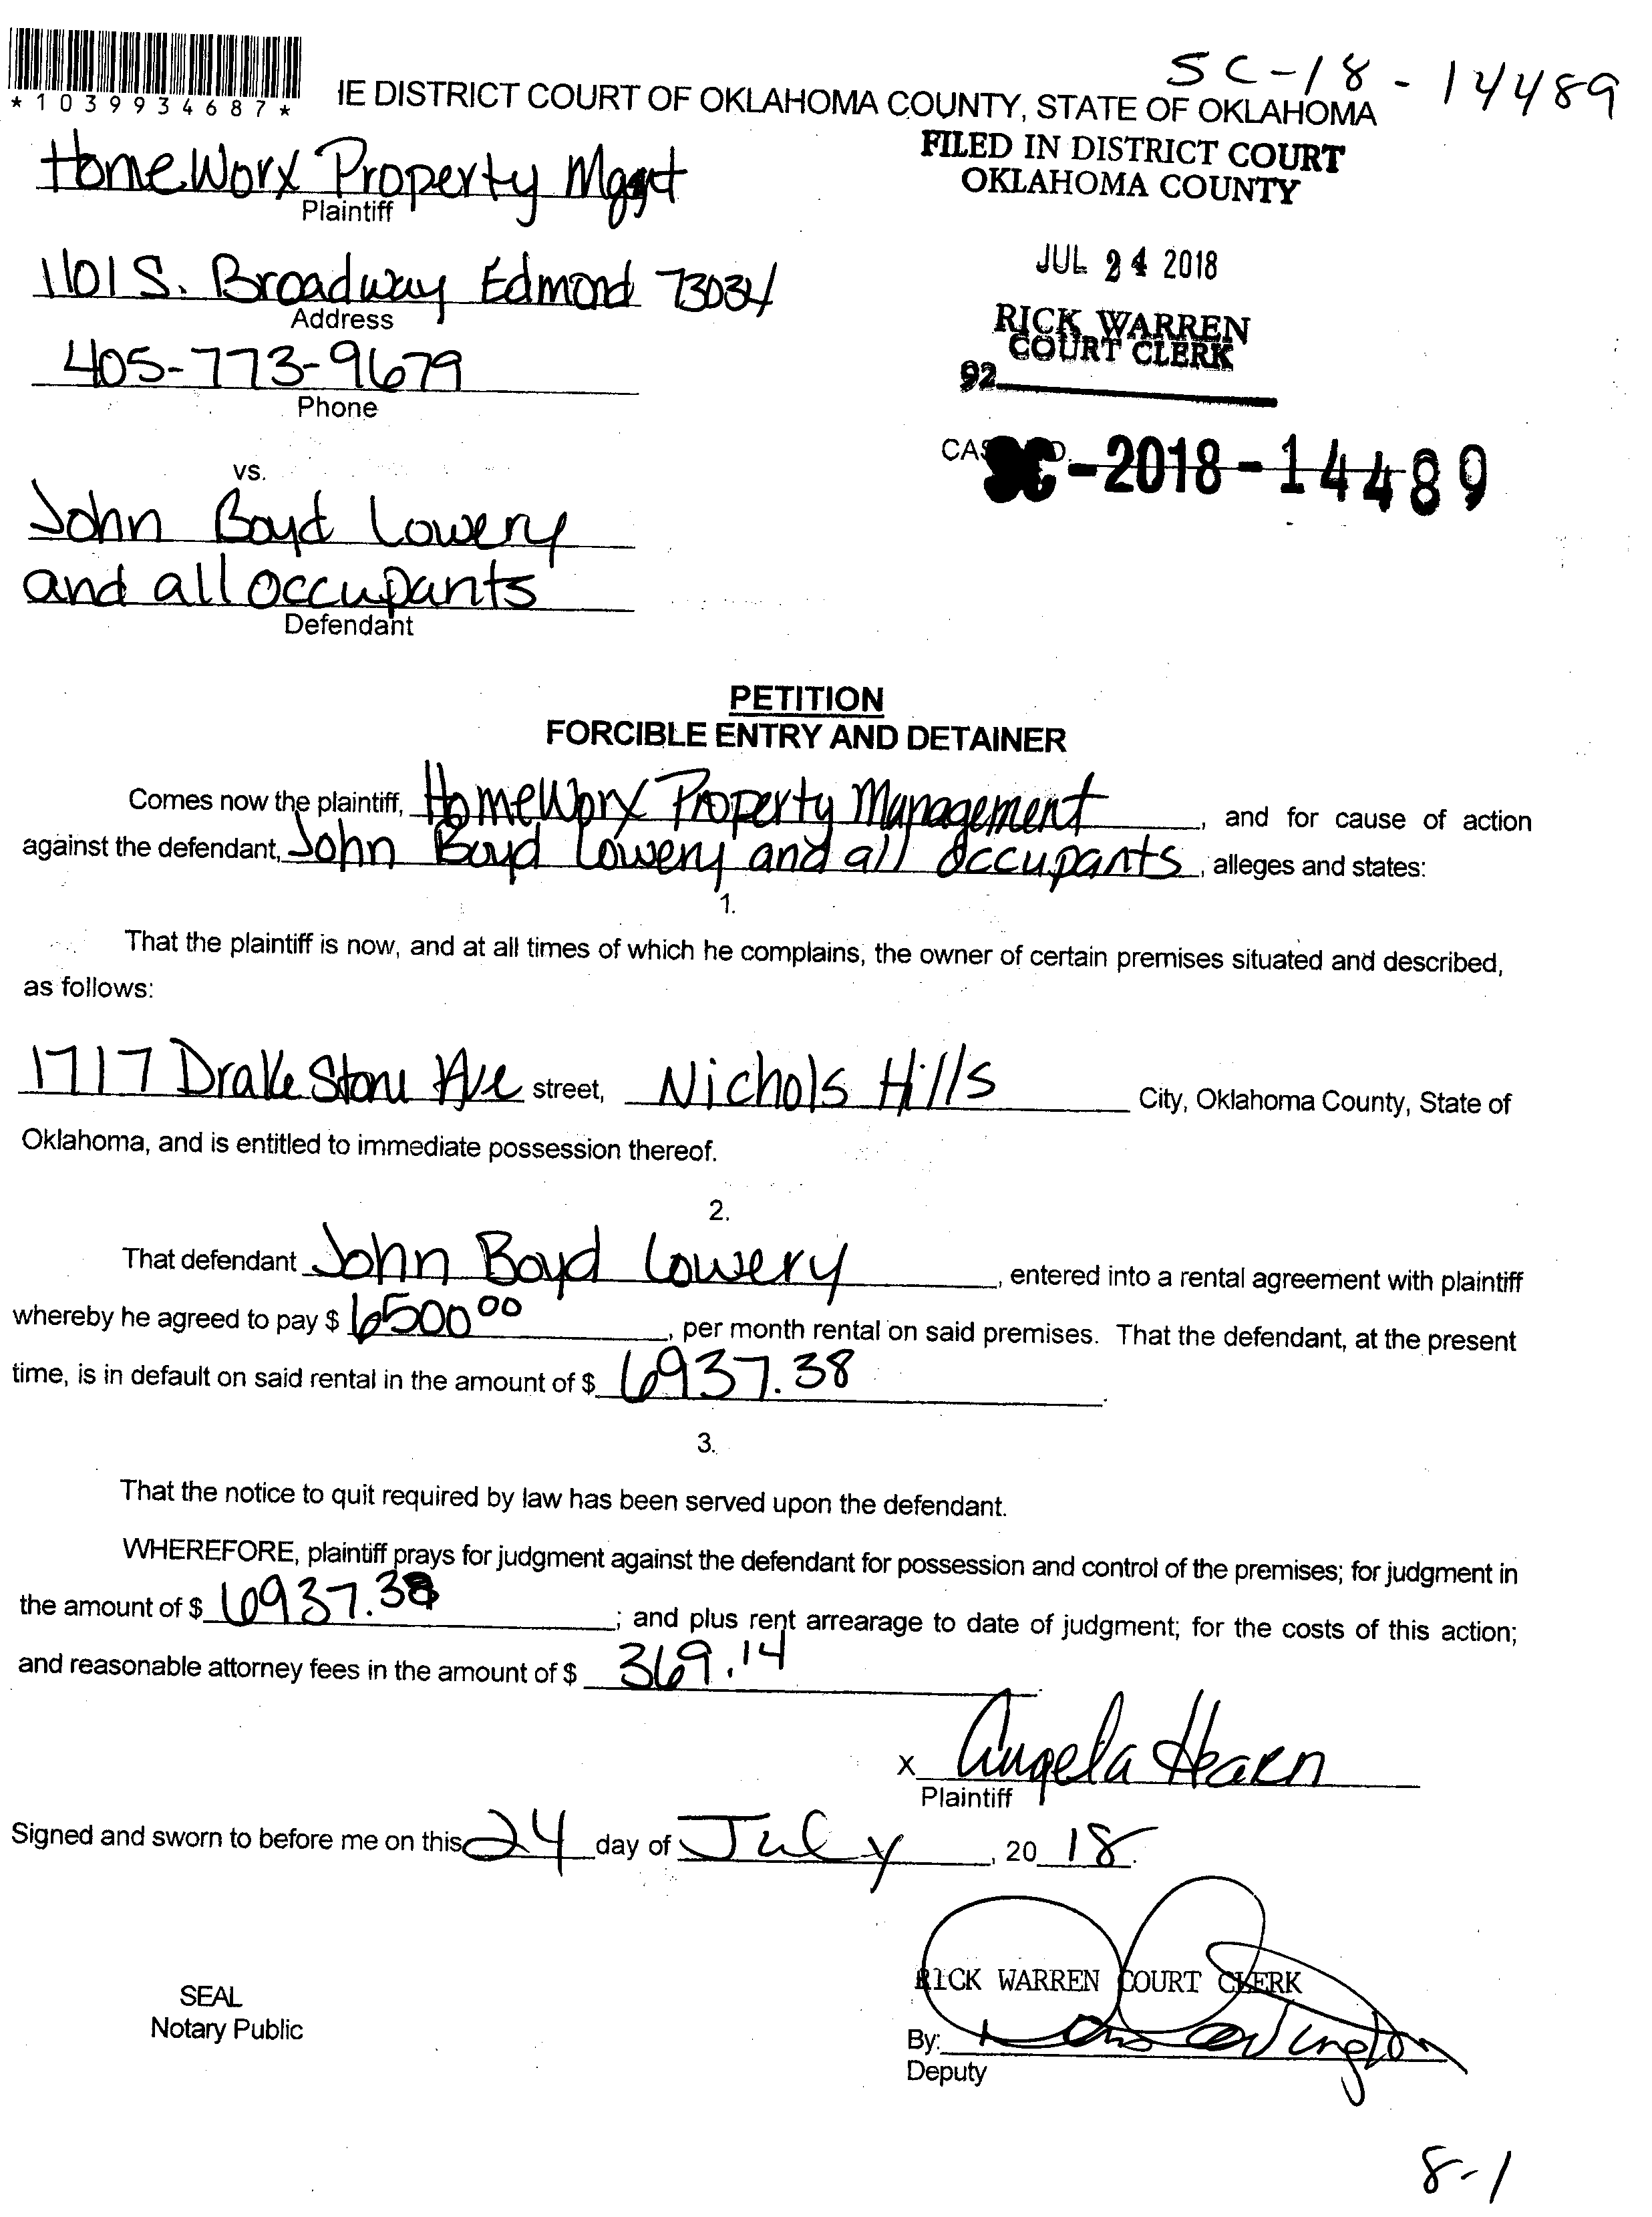 SC-18-14489
*1039934687*
IE DISTRICT COURT OF OKLAHOMA COUNTY, STATE OF OKLAHOMA
HomeWorx Property Mgmt
Plaintiff
FILED IN DISTRICT COURT
OKLAHOMA COUNTY
1101 S. Broadway Edmond 73034
Address
JUL 24 2018
405-773-9679
Phone
RICK WARREN
COURT CLERK
92
vs.
CAS SC-2018-14489
John Boyd Lowery
and all occupants
Defendant
PETITION
FORCIBLE ENTRY AND DETAINER
Comes now the plaintiff, HomeWorx Property Management, and for cause of action
against the defendant, John Boyd Lowery and all occupants, alleges and states:
1.
That the plaintiff is now, and at all times of which he complains, the owner of certain premises situated and described,
as follows:
1717 Drake Stone Ave street, Nichols Hills City, Oklahoma County, State of
Oklahoma, and is entitled to immediate possession thereof.
2.
That defendant John Boyd Lowery, entered into a rental agreement with plaintiff
whereby he agreed to pay $ 6500 00, per month rental on said premises. That the defendant, at the present
time, is in default on said rental in the amount of $ 6937.38.
3.
That the notice to quit required by law has been served upon the defendant.
WHEREFORE, plaintiff prays for judgment against the defendant for possession and control of the premises; for judgment in
the amount of $ 6937.38; and plus rent arrearage to date of judgment; for the costs of this action;
and reasonable attorney fees in the amount of $ 369.14.
x Angela Hearn
Plaintiff
Signed and sworn to before me on this 24 day of July, 2018.
SEAL
Notary Public
RICK WARREN COURT CLERK
By:
Deputy
8-1